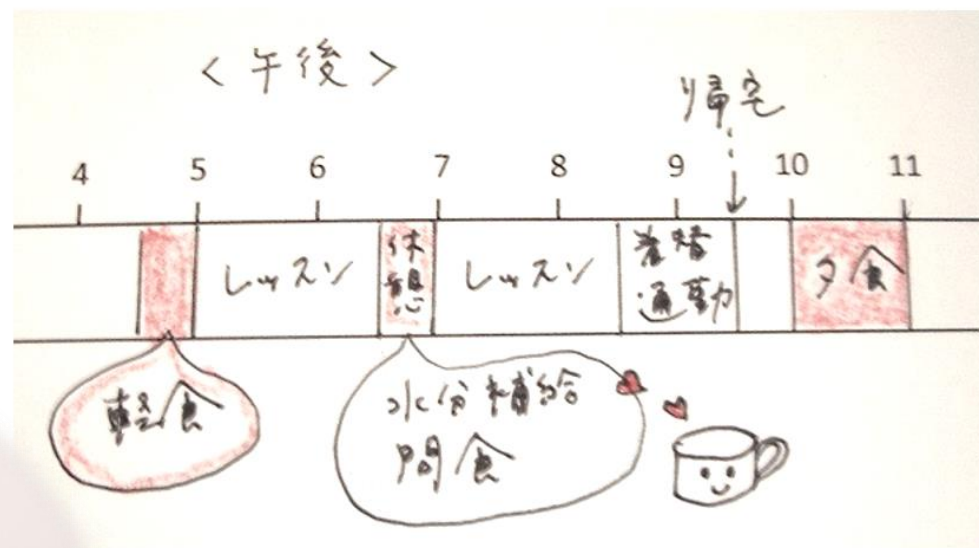 <午後>
帰宅
4 5 6 7 8 9 10 11
レッスン
休憩
レッスン
着替
通勤
夕食
軽食
水分補給
間食